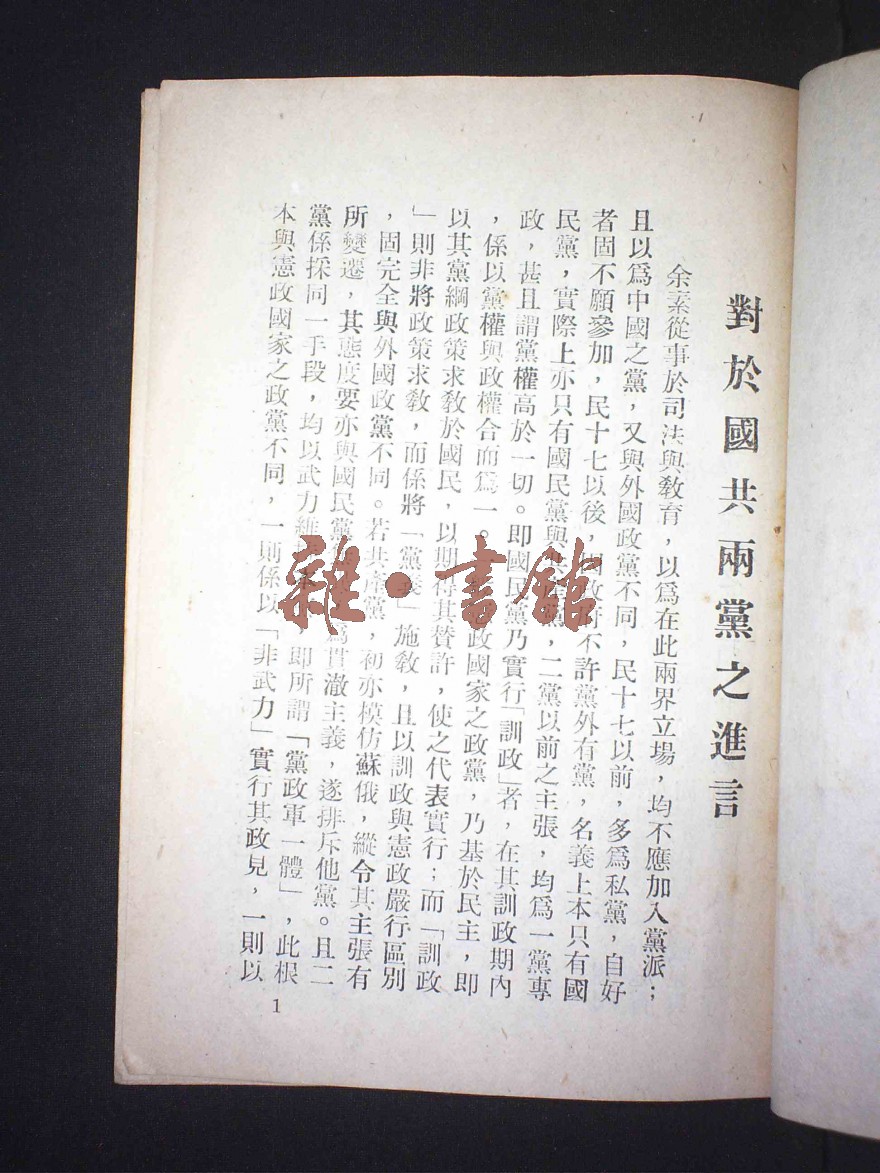 對於國共兩黨之進言
余素從事於司法與教育，以爲在此兩界立場，均不應加入黨派；
且以爲中國之黨，又與外國政黨不同，民十七以前，多爲私黨，自好
者固不願參加，民十七以後，政府不許黨外有黨，名義上本只有國
民黨，實際上亦只有國民黨與黨，二黨以前之主張，均爲一黨專
政，甚且謂黨權高於一切。即國民黨乃實行「訓政」者，在其訓政期內
，係以黨權與政權合而爲一。政國家之政黨，乃基於民主，即
以其黨綱政策求教於國民，以期得其贊許，使之代表實行；而「訓政
」則非將政策求教，而係將「黨義」施教，且以訓政與憲政嚴行區別
，固完全與外國政黨不同。若共產黨，初亦模仿蘇俄，縱令其主張有
所變遷，其態度要亦與國民黨爲貫澈主義，遂排斥他黨。且二
黨係採同一手段，均以武力維，即所謂「黨政軍一體」，此根
本與憲政國家之政黨不同，一則係以「非武力」實行其政見，一則以
1
雜·書館